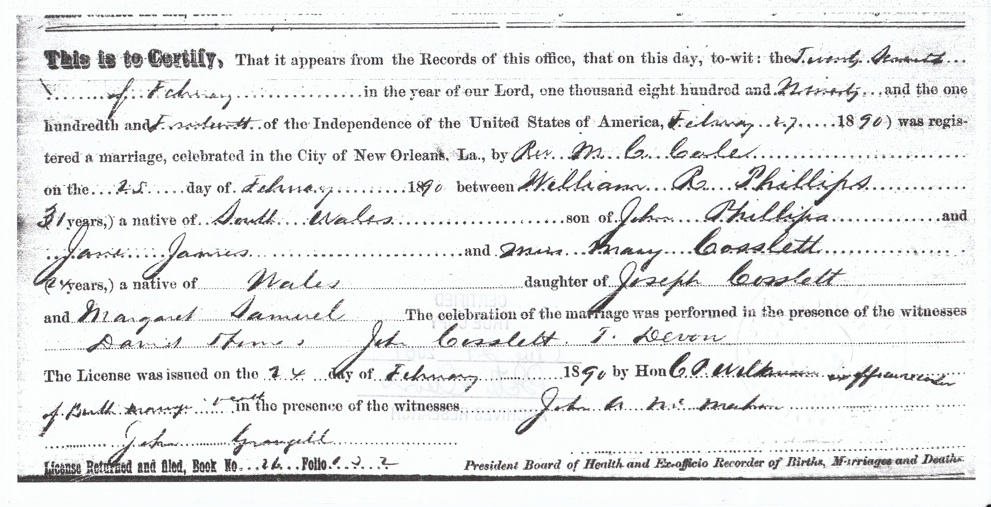 This is to Certify, That it appears from the Records of this office, that on this day, to-wit: the Twenty Seventh
of February in the year of our Lord, one thousand eight hundred and Ninety and the one
hundredth and Fourteenth of the Independence of the United States of America, February 27, 1890) was regis-
tered a marriage, celebrated in the City of New Orleans, La., by Rev M. C. Cole
on the 25 day of February 1890 between William R. Phillips
31 years,) a native of South Wales son of John Phillips and
Jane James and Miss Mary Cosslett
(24 years,) a native of Wales daughter of Joseph Cosslett
and Margaret Samuel The celebration of the marriage was performed in the presence of the witnesses
David Thomas John Cosslett. T. Devon
The License was issued on the 24 day of February 1890 by Hon C. P. Wilkinson ex officio recorder
of Birth marriage death in the presence of the witnesses John A. McMahon
John
License Returned and filed, Book No. 26 Folio 
President Board of Health and Ex-officio Recorder of Births, Marriages and Deaths.